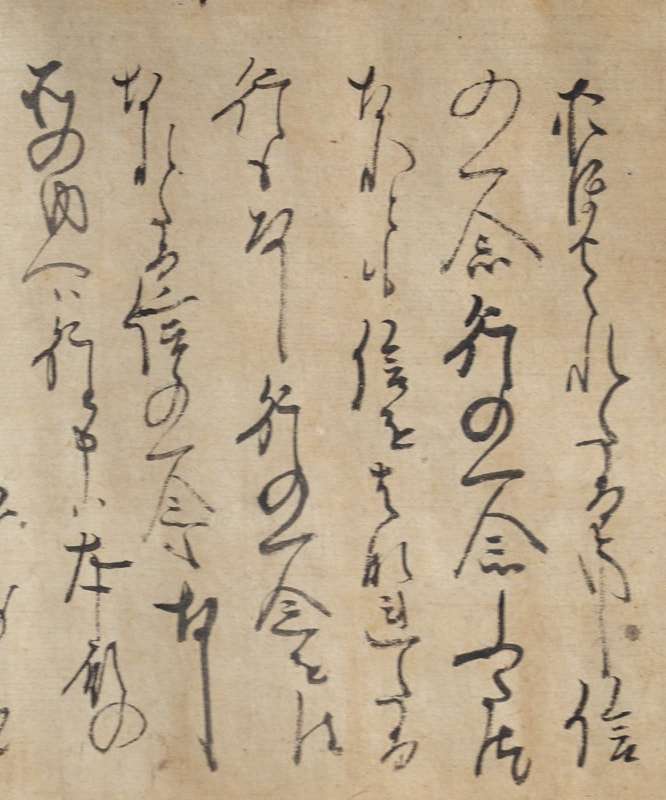 おほせられたる事信
の一念行の一念ふたつ
なれとも信をはなれたる
行もなし行の一念をは
なれたる信の一念もなし
そのゆへは行と申は本願の